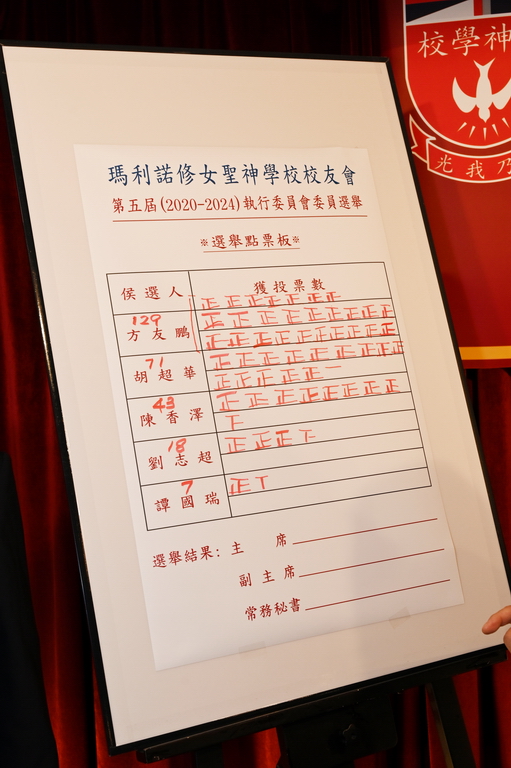 校學神
光我乃
瑪利諾修女聖神學校校友會
第五屆(2020-2024)執行委員會委員選舉
※選舉點票板※
侯選人 獲投票數
正正正正正正正
129 正正正正正正正正
方友鵬 正正正正正正正正正
71 正正正正正正正正
胡超華 正正正正正一
43 正正正正正正正正
陳香澤 下
18 正正正下
劉志超
7 正丅
譚國瑞
選舉結果: 主 席
副主席
常務秘書